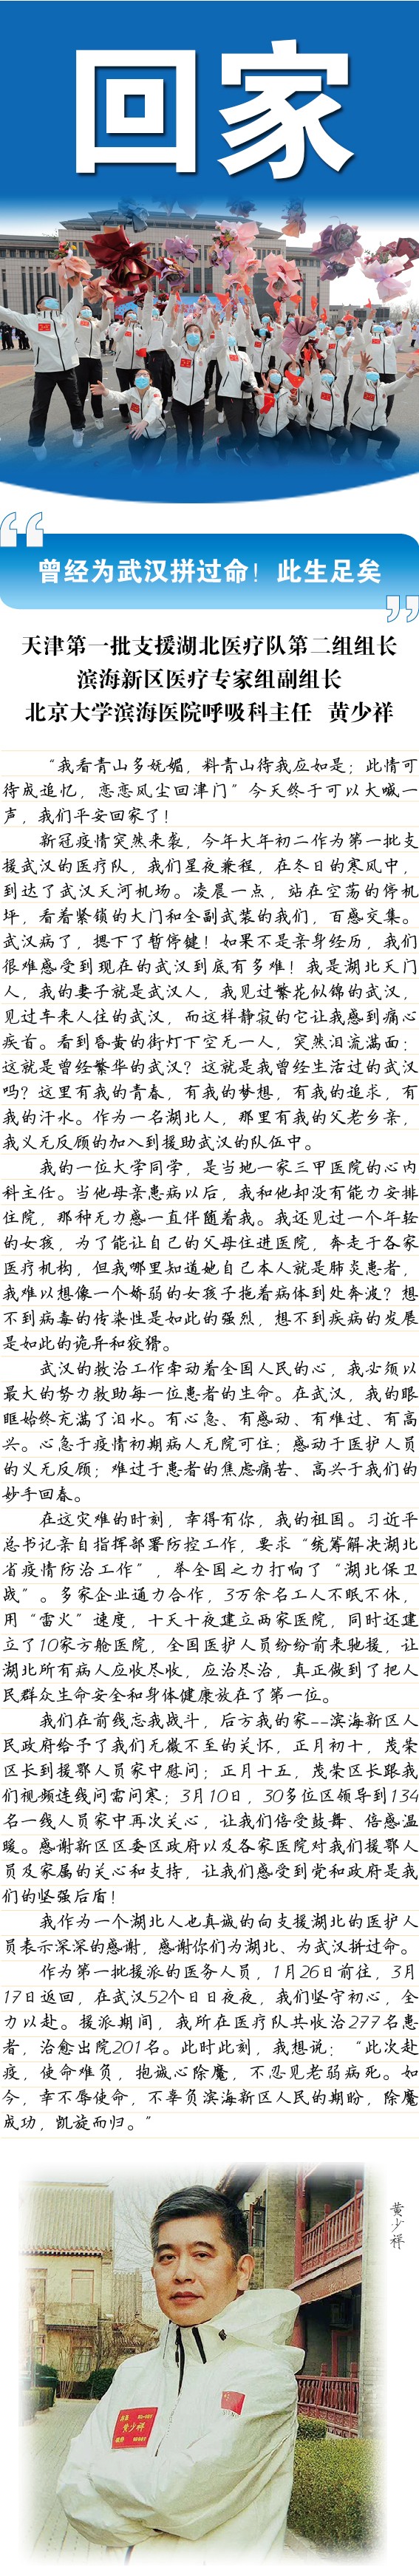 回家
曾经为武汉拼过命！此生足矣
天津第一批支援湖北医疗队第二组组长
滨海新区医疗专家组副组长
北京大学滨海医院呼吸科主任 黄少祥
“我看青山多妩媚，料青山待我应如是；此情可
待成追忆，恋恋风尘回津门”今天终于可以大喊一
声，我们平安回家了！
新冠疫情突然来袭，今年大年初二作为第一批支
援武汉的医疗队，我们星夜兼程，在冬日的寒风中，
到达了武汉天河机场。凌晨一点，站在空荡的停机
坪，看着紧锁的大门和全副武装的我们，百感交集。
武汉病了，摁下了暂停键！如果不是亲身经历，我们
很难感受到现在的武汉到底有多难！我是湖北天门
人，我的妻子就是武汉人，我见过繁花似锦的武汉，
见过车来人往的武汉，而这样静寂的它让我感到痛心
疾首。看到昏黄的街灯下空无一人，突然泪流满面：
这就是曾经繁华的武汉？这就是我曾经生活过的武汉
吗？这里有我的青春，有我的梦想，有我的追求，有
我的汗水。作为一名湖北人，那里有我的父老乡亲，
我义无反顾的加入到援助武汉的队伍中。
我的一位大学同学，是当地一家三甲医院的心内
科主任。当他母亲患病以后，我和他却没有能力安排
住院，那种无力感一直伴随着我。我还见过一个年轻
的女孩，为了能让自己的父母住进医院，奔走于各家
医疗机构，但我哪里知道她自己本人就是肺炎患者，
我难以想像一个娇弱的女孩子拖着病体到处奔波？想
不到病毒的传染性是如此的强烈，想不到疾病的发展
是如此的诡异和狡猾。
武汉的救治工作牵动着全国人民的心，我必须以
最大的努力救助每一位患者的生命。在武汉，我的眼
眶始终充满了泪水。有心急、有感动、有难过、有高
兴。心急于疫情初期病人无院可住；感动于医护人员
的义无反顾；难过于患者的焦虑痛苦、高兴于我们的
妙手回春。
在这灾难的时刻，幸得有你，我的祖国。习近平
总书记亲自指挥部署防控工作，要求“统筹解决湖北
省疫情防治工作”，举全国之力打响了“湖北保卫
战”。多家企业通力合作，3万余名工人不眠不休，
用“雷火”速度，十天十夜建立两家医院，同时还建
立了10家方舱医院，全国医护人员纷纷前来驰援，让
湖北所有病人应收尽收，应治尽治，真正做到了把人
民群众生命安全和身体健康放在了第一位。
我们在前线忘我战斗，后方我的家--滨海新区人
民政府给予了我们无微不至的关怀，正月初十，茂荣
区长到援鄂人员家中慰问；正月十五，茂荣区长跟我
们视频连线问需问寒；3月10日，30多位区领导到134
名一线人员家中再次关心，让我们倍受鼓舞、倍感温
暖。感谢新区区委区政府以及各家医院对我们援鄂人
员及家属的关心和支持，让我们感受到党和政府是我
们的坚强后盾！
我作为一个湖北人也真诚的向支援湖北的医护人
员表示深深的感谢，感谢你们为湖北、为武汉拼过命。
作为第一批援派的医务人员，1月26日前往，3月
17日返回，在武汉52个日日夜夜，我们坚守初心，全
力以赴。援派期间，我所在医疗队共收治277名患
者，治愈出院201名。此时此刻，我想说：“此次赴
疫，使命难负，抱诚心除魔，不忍见老弱病死。如
今，幸不辱使命，不辜负滨海新区人民的期盼，除魔
成功，凯旋而归。”
黄少祥
黄少祥